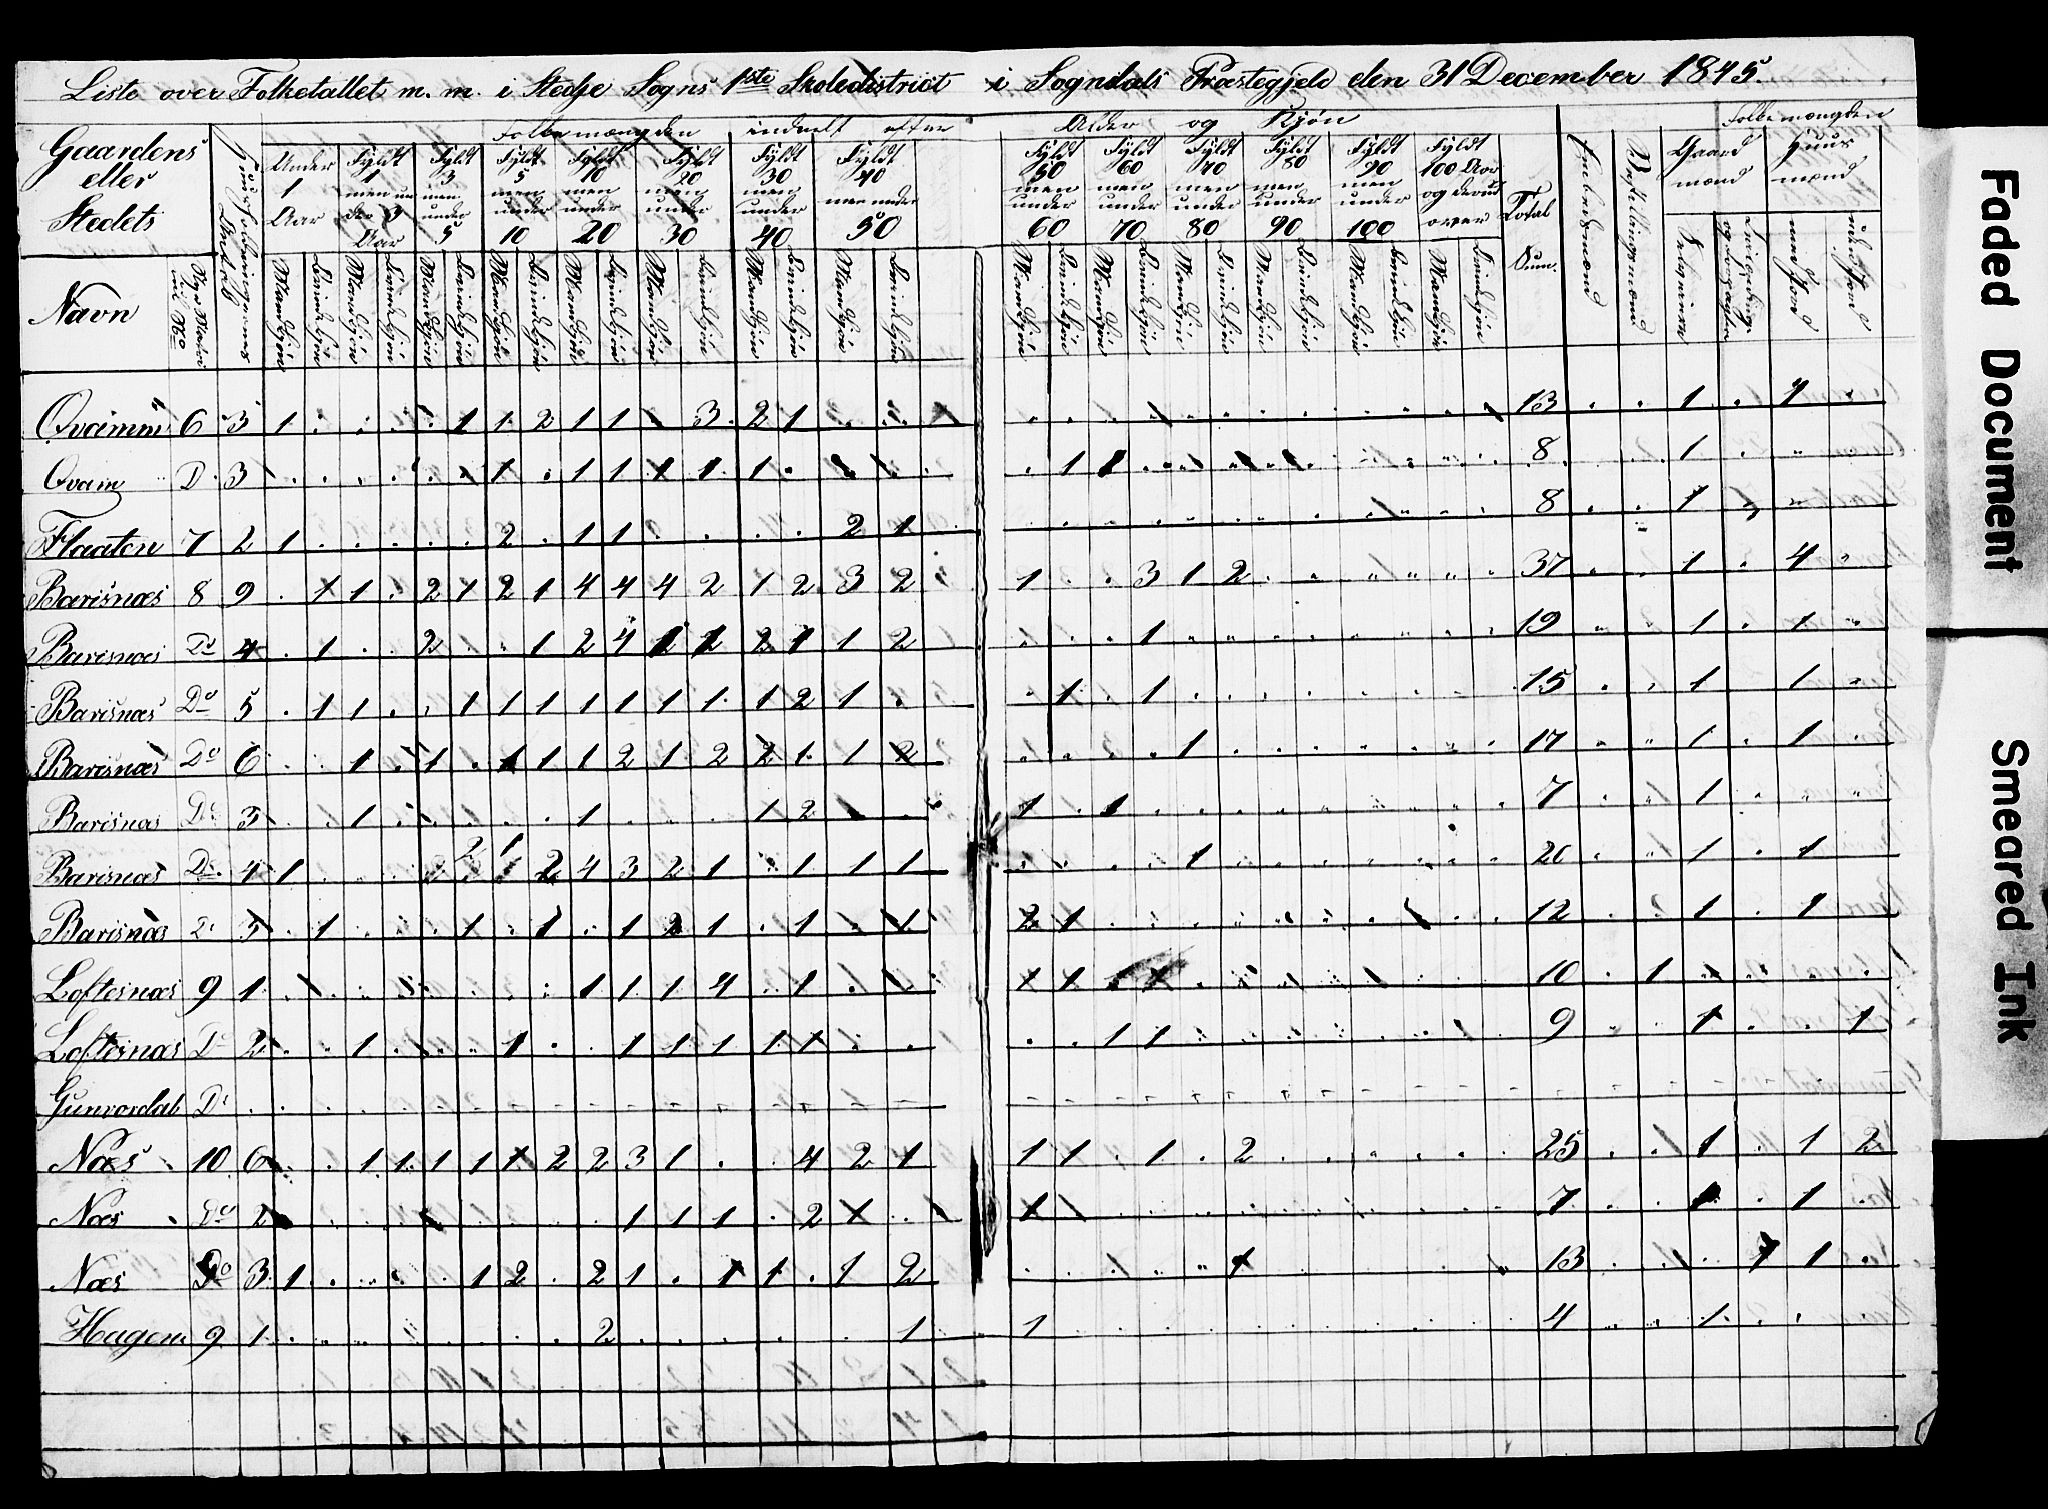 Liste over Folketallet m. m. i Stedje Sogns 1ste Skoledistrict i Sogndals Præstegjeld den 31 December 1845.
Folkemængden inddelt efter Alder og Kjøn Folkemængden
Gaardens eller Stedets
Navn
Under 1 Aar
Fyldt 1 men under 3 Aar
Fyldt 3 men under 5
Fyldt 5 men under 10
Fyldt 10 men under 20
Fyldt 20 men under 30
Fyldt 30 men under 40
Fyldt 40 men under 50
Fyldt 50 men under 60
Fyldt 60 men under 70
Fyldt 70 men under 80
Fyldt 80 men under 90
Fyldt 90 men under 100
Fyldt 100 Aar og derudover
Total Sum.
Embedsmænd
Gaardmænd
Huusmænd
Mandkjøn Qvindekjøn
Qvamm 6 3 1 1 1 2 1 1 3 2 1 13 1 1
Qvam D. 3 1 1 1 1 1 1 1 1 8 1
Flaaten 7 2 1 2 1 1 2 1 8 1
Barisnæs 8 9 1 1 2 1 2 1 4 4 4 2 1 2 3 2 1 3 1 2 37 1 4
Barisnæs Do 4 1 2 1 2 4 1 2 2 1 1 2 1 19 1 1
Barisnæs Do 5 1 1 1 1 1 1 1 1 1 1 2 1 1 1 15 1 1
Barisnæs Do 6 1 1 1 1 1 2 1 2 2 1 1 2 1 17 1 1
Barisnæs Do 3 1 1 1 2 1 1 7 1
Barisnæs Do 4 1 2 1 2 4 3 2 1 1 1 1 1 20 1 1
Barisnæs D. 3 1 1 1 1 2 1 1 1 2 1 12 1 1
Loftesnæs 9 1 1 1 1 4 1 1 1 10 1
Loftesnæs D. 2 1 1 1 1 1 1 1 1 1 9 1 1
Gunvordal D.
Næs 10 6 1 1 1 1 1 2 2 3 1 4 2 1 1 1 1 2 25 1 1 2
Næs Do 2 1 1 1 2 1 1 7 1 1
Næs Do 3 1 1 2 2 1 1 1 1 2 1 13 1 1
Hagen 9 1 2 1 1 4 1
Faded Document
Smeared Ink